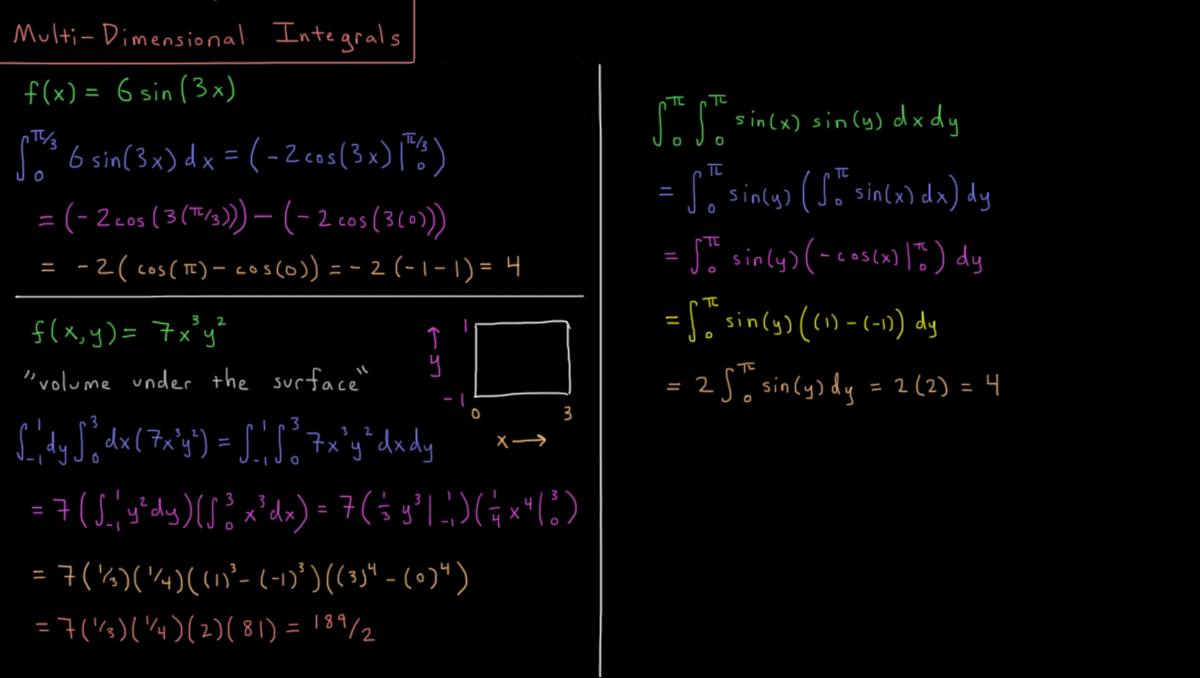 Multi-Dimensional Integrals
f(x) = 6 sin(3x)
∫₀^{π/3} 6 sin(3x) dx = (-2 cos(3x)|₀^{π/3})
= (-2 cos(3(π/3))) - (-2 cos(3(0)))
= -2(cos(π) - cos(0)) = -2(-1-1) = 4
f(x,y) = 7x³y²
"volume under the surface"
1
↑
y
-1
0 3
x →
∫₋₁¹ dy ∫₀³ dx (7x³y²) = ∫₋₁¹ ∫₀³ 7x³y² dx dy
= 7(∫₋₁¹ y² dy)(∫₀³ x³ dx) = 7(⅓ y³|₋₁¹)(¼ x⁴|₀³)
= 7(1/3)(1/4)((1)³ - (-1)³)((3)⁴ - (0)⁴)
= 7(1/3)(1/4)(2)(81) = 189/2
∫₀^π ∫₀^π sin(x) sin(y) dx dy
= ∫₀^π sin(y) (∫₀^π sin(x) dx) dy
= ∫₀^π sin(y) (-cos(x)|₀^π) dy
= ∫₀^π sin(y) ((1) - (-1)) dy
= 2 ∫₀^π sin(y) dy = 2(2) = 4